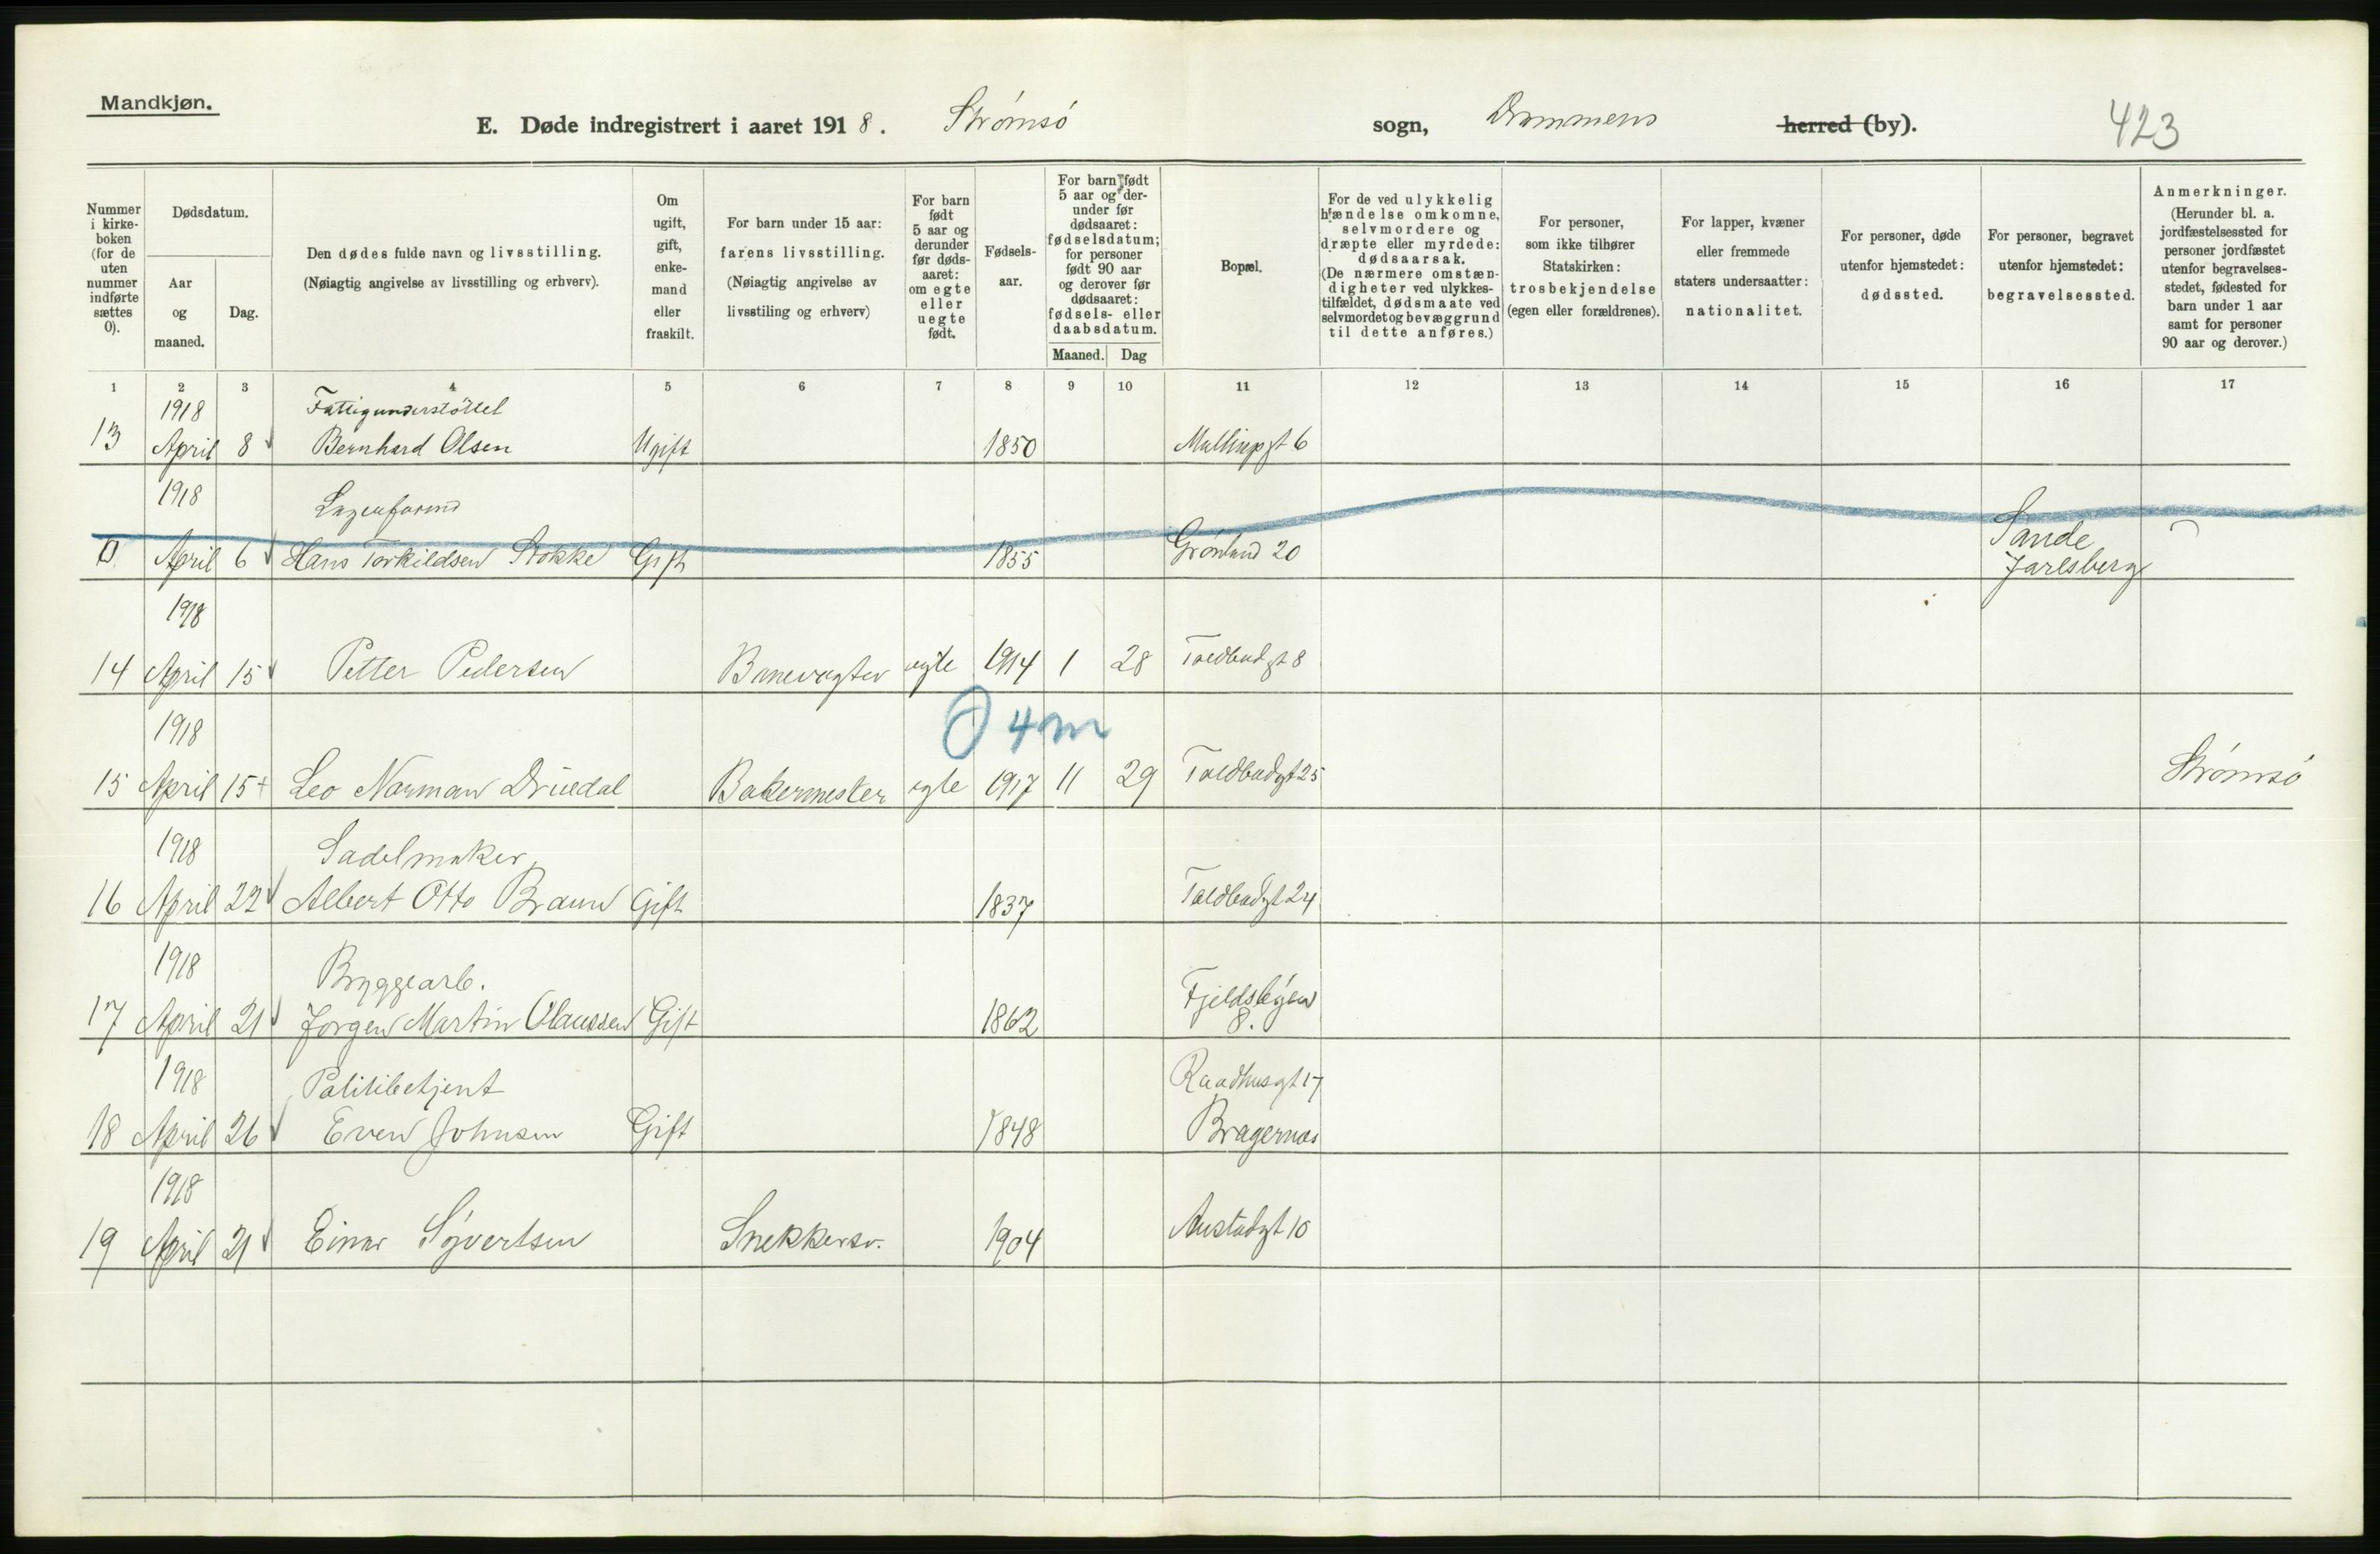 Mandkjøn.
E. Døde indregistrert i aaret 1918. Strømsö sogn, Drammens herred (by). 423
Nummer i kirkeboken (for de uten nummer indførte sættes 0).
Dødsdatum.
Aar og maaned.
Dag.
Den dødes fulde navn og livsstilling. (Nøiagtig angivelse av livsstilling og erhverv).
Om ugift, gift, enkemand eller fraskilt.
For barn under 15 aar: farens livsstilling. (Nøiagtig angivelse av livsstiling og erhverv)
For barn født 5 aar og derunder før dødsaaret: om egte eller uegte født.
Fødselsaar.
For barn født 5 aar og derunder før dødsaaret: fødselsdatum; for personer født 90 aar og derover før dødsaaret: fødsels- eller daabsdatum.
Maaned. Dag
Bopæl.
For de ved ulykkelig hændelse omkomne, selvmordere og dræpte eller myrdede: dødsaarsak. (De nærmere omstændigheter ved ulykkestilfældet, dødsmaate ved selvmordet og bevæggrund til dette anføres.)
For personer, som ikke tilhører Statskirken: trosbekjendelse (egen eller forældrenes).
For lapper, kvæner eller fremmede staters undersaatter: nationalitet.
For personer, døde utenfor hjemstedet: dødssted.
For personer, begravet utenfor hjemstedet: begravelsessted.
Anmerkninger. (Herunder bl. a. jordfæstelsessted for personer jordfæstet utenfor begravelsesstedet, fødested for barn under 1 aar samt for personer 90 aar og derover.)
1 2 3 4 5 6 7 8 9 10 11 12 13 14 15 16 17
1918 Fattigunderstöttet
13 April 8 Bernhard Olsen Ugift 1850 6
1918
0 April 6 Hans Torkildsen Stokke Gift 1855 Grönland 20 Sande
Jarlsberg
1918
14 April 15 Petter Pedersen Banevogter egte 1914 1 28 Toldbodgt 8
O 4 m
1918
15 April 15+ Leo Norman egte 1917 11 29 Bakermester Toldbodgt 25 Strömsö
1918 Sadelmaker
16 April 22 Albert Otto Braun Gift 1837 Toldbodgt 24
1918 Bryggearb.
17 April 21 Jorgen Martin Olaussen Gift 1862 Fjeldsbyen
8.
1918 Politibetjent Raadhusgt 17
18 April 26 Even Johnsen Gift 1848 Bragernæs
1918
19 April 21 Einar Syvertsen Snekkersv. 1904 Austadgt 10